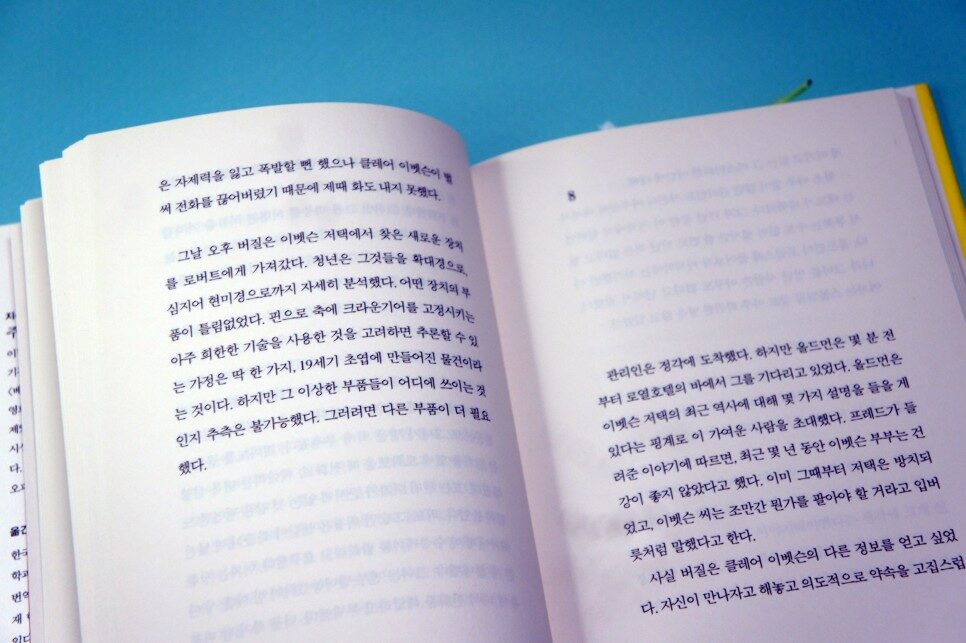 은 자제력을 잃고 폭발할 뻔 했으나 클레어 이벳슨이 벌
써 전화를 끊어버렸기 때문에 제때 화도 내지 못했다.
그날 오후 버질은 이벳슨 저택에서 찾은 새로운 장치
를 로버트에게 가져갔다. 청년은 그것들을 확대경으로,
심지어 현미경으로까지 자세히 분석했다. 어떤 장치의 부
품이 틀림없었다. 핀으로 축에 크라운기어를 고정시키는
아주 희한한 기술을 사용한 것을 고려하면 추론할 수 있
는 가정은 딱 한 가지, 19세기 초엽에 만들어진 물건이라
는 것이다. 하지만 그 이상한 부품들이 어디에 쓰이는 것
인지 추측은 불가능했다. 그러려면 다른 부품이 더 필요
했다.
8
관리인은 정각에 도착했다. 하지만 올드먼은 몇 분 전
부터 로열호텔의 바에서 그를 기다리고 있었다. 올드먼은
이벳슨 저택의 최근 역사에 대해 몇 가지 설명을 들을 게
있다는 핑계로 이 가여운 사람을 초대했다. 프레드가 들
려준 이야기에 따르면, 최근 몇 년 동안 이벳슨 부부는 건
강이 좋지 않았다고 했다. 이미 그때부터 저택은 방치되
었고, 이벳슨 씨는 조만간 뭔가를 팔아야 할 거라고 입버
릇처럼 말했다고 한다.
사실 버질은 클레어 이벳슨의 다른 정보를 얻고 싶었
다. 자신이 만나자고 해놓고 의도적으로 약속을 고집스럽